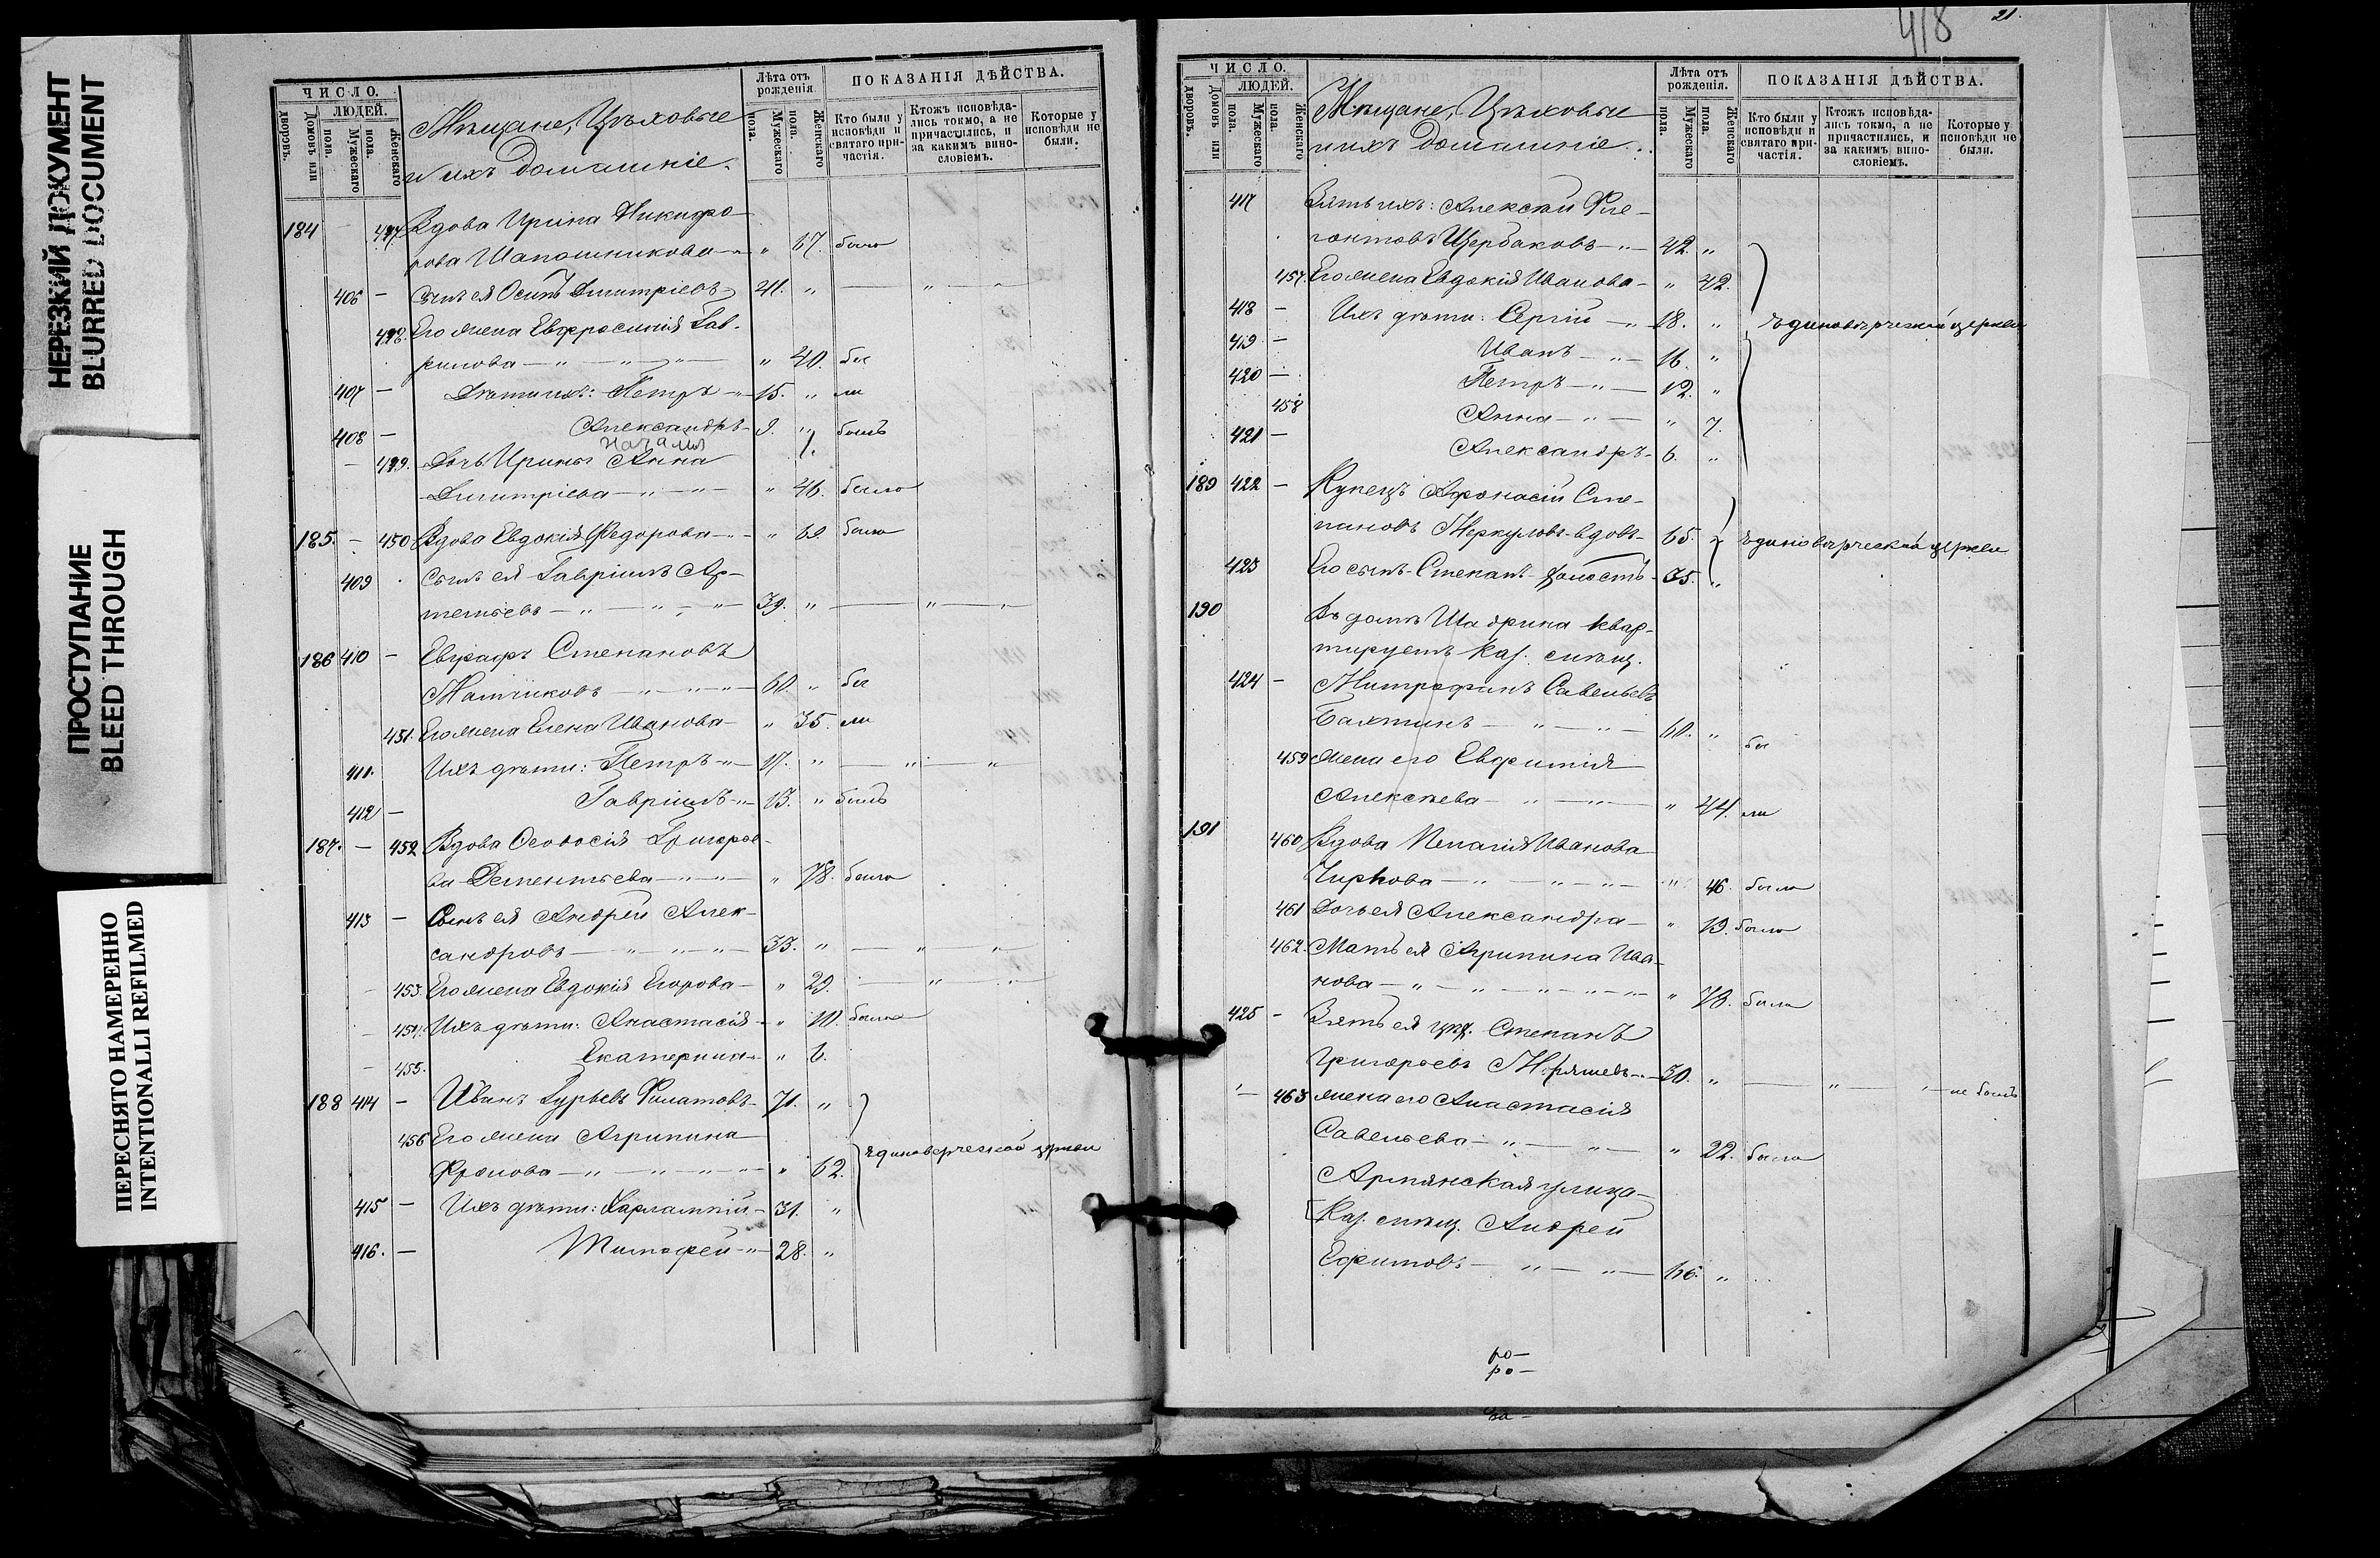 НЕРЕЗКИЙ ДОКУМЕНТ
BLURRED DOCUMENT
ПРОСТУПАНИЕ
BLEED THROUGH
ПЕРЕСНЯТО НАМЕРЕННО
INTENTIONALLI REFILMED
ЧИСЛО.
ЛЮДЕЙ.
Домовъ или дворовъ.
Мужескаго пола.
Женскаго пола.
Мѣщане, Цѣховые
и ихъ домашніе.
Лѣта отъ рожденія
Мужескаго пола.
Женскаго пола.
ПОКАЗАНІЯ ДѢЙСТВА.
Кто были у исповѣди и святаго причастія.
Ктожъ исповѣдались токмо, а не причастились, и за какимъ винословіемъ.
Которые у исповѣди не были.
184 – Вдова Ирина Никифо-
рова Шапошникова – „ 67. была
406 – Сынъ ея Осипъ Димитріевъ 41. „ – „ –
Его жена Евфросинія Гав-
рилова – „ – „ – „ – „ 40. бы
407 – Дѣти ихъ: Петръ – 15. „ ли
408 – Александръ – 9. „ былъ
Дочь Ирины Анна
Димитріева – „ – „ – „ 46. была
185. – 450 Вдова Евдокія Федорова – „ – „ 69. была
409 Сынъ ея Гавріилъ Ар-
темьевъ – „ – „ – „ – 39. „ – „ –
186 410 – Евграфъ Степановъ
– „ – „ – 60. „ бы
451. Его жена Елена Иванова – „ 35. ли
411. Ихъ дѣти: Петръ – „ – 17. „ – „ – „
412 – Гавріилъ – „ – 13. „ былъ
187. – 452 Вдова Ѳеодосія Григорье-
ва Дементьева – „ – „ – „ 78. была
413 – Сынъ ея Андрей Алек-
сандровъ – „ – „ – „ – 33. „ – „ – „
453. Его жена Евдокія Егорова – „ 29. – „ – „
454. Ихъ дѣти: Анастасія – „ 10. была
455. Екатерина – „ 6.
188 414 – Иванъ Гурьевъ Филатовъ – 71. „
456 Его жена Агрипина
Фролова – „ – „ – „ – „ 62. Единоверческой церкви
415 – Ихъ дѣти: Харлампій – 31. „
416. – Тимофей – „ – 28. „
418
21.
ЧИСЛО.
ЛЮДЕЙ.
Домовъ или дворовъ.
Мужескаго пола.
Женскаго пола.
Мѣщане, Цѣховые
и ихъ домашніе.
Лѣта отъ рожденія.
Мужескаго пола.
Женскаго пола.
ПОКАЗАНІЯ ДѢЙСТВА.
Кто были у исповѣди и святаго причастія.
Ктожъ исповѣдались токмо, а не причастились, и за какимъ винословіемъ.
Которые у исповѣди не были.
417 Зять ихъ: Алексѣй Фле-
гонтовъ Щербаковъ – „ – 42. „
457. Его жена Евдокія Иванова – „ 42.
418 – Ихъ дѣти: Сергій – „ 18. „ Единовѣрческой церкви
419 – Иванъ – „ – 16. „
420 – Петръ – „ – 12. „
458 Анна – „ – „ 7.
421 – Александръ – 6. „
189 422 – Купецъ Афонасій Сте-
пановъ Меркуловъ – вдовъ – 65. „ Единовѣрческой церкви
423 Его сынъ – Степанъ – холостъ – 35. „
190 Въ домѣ Шадрина квар-
тируетъ Каз.
424 – Митрофанъ Савельевъ
– „ – „ – 60. „ бы
459 жена его Евфимія
Алексѣева – „ – „ – „ 44. ли
191 460 Вдова Пелагія Иванова
Чиркова – „ – „ – „ – „ 46. была
461 Дочь ея Александра – „ 19. была
462. Мать ея Агрипина Ива-
нова – „ – „ – „ – „ – „ 73. была
425 – Зять ея Степанъ
Григорьевъ – „ – 30. „ – „ – „ – не былъ
463 жена его Анастасія
Савельева – „ – „ – „ 22. была
Армянская улица
Каз. Андрей
Ефимовъ – „ – „ – 66. „
ро –
ро –
ва –